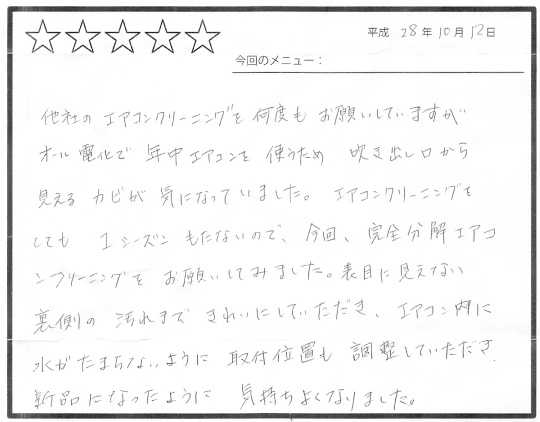 平成 28年10月12日
今回のメニュー：
他社の エアコンクリーニングを 何度も お願いしていますが
オール電化で 年中エアコンを 使うため 吹き出し口から
見える カビが 気になっていました。 エアコンクリーニングを
しても 1シーズン もたないので、今回、完全分解エアコ
ンクリーニングを お願いしてみました。表目に見えない
裏側の 汚れまで きれいにしていただき、エアコン内に
水がたまらないように 取付位置も 調整していただき、
新品になったように 気持ちよくなりました。